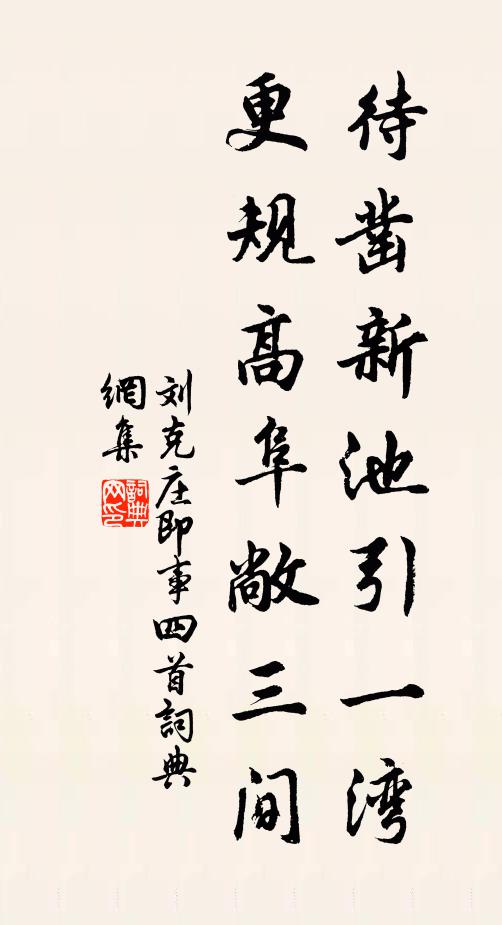 待凿新池引一湾
更规高阜敞三间
刘克庄即事四首詞典
網集
詞典网印